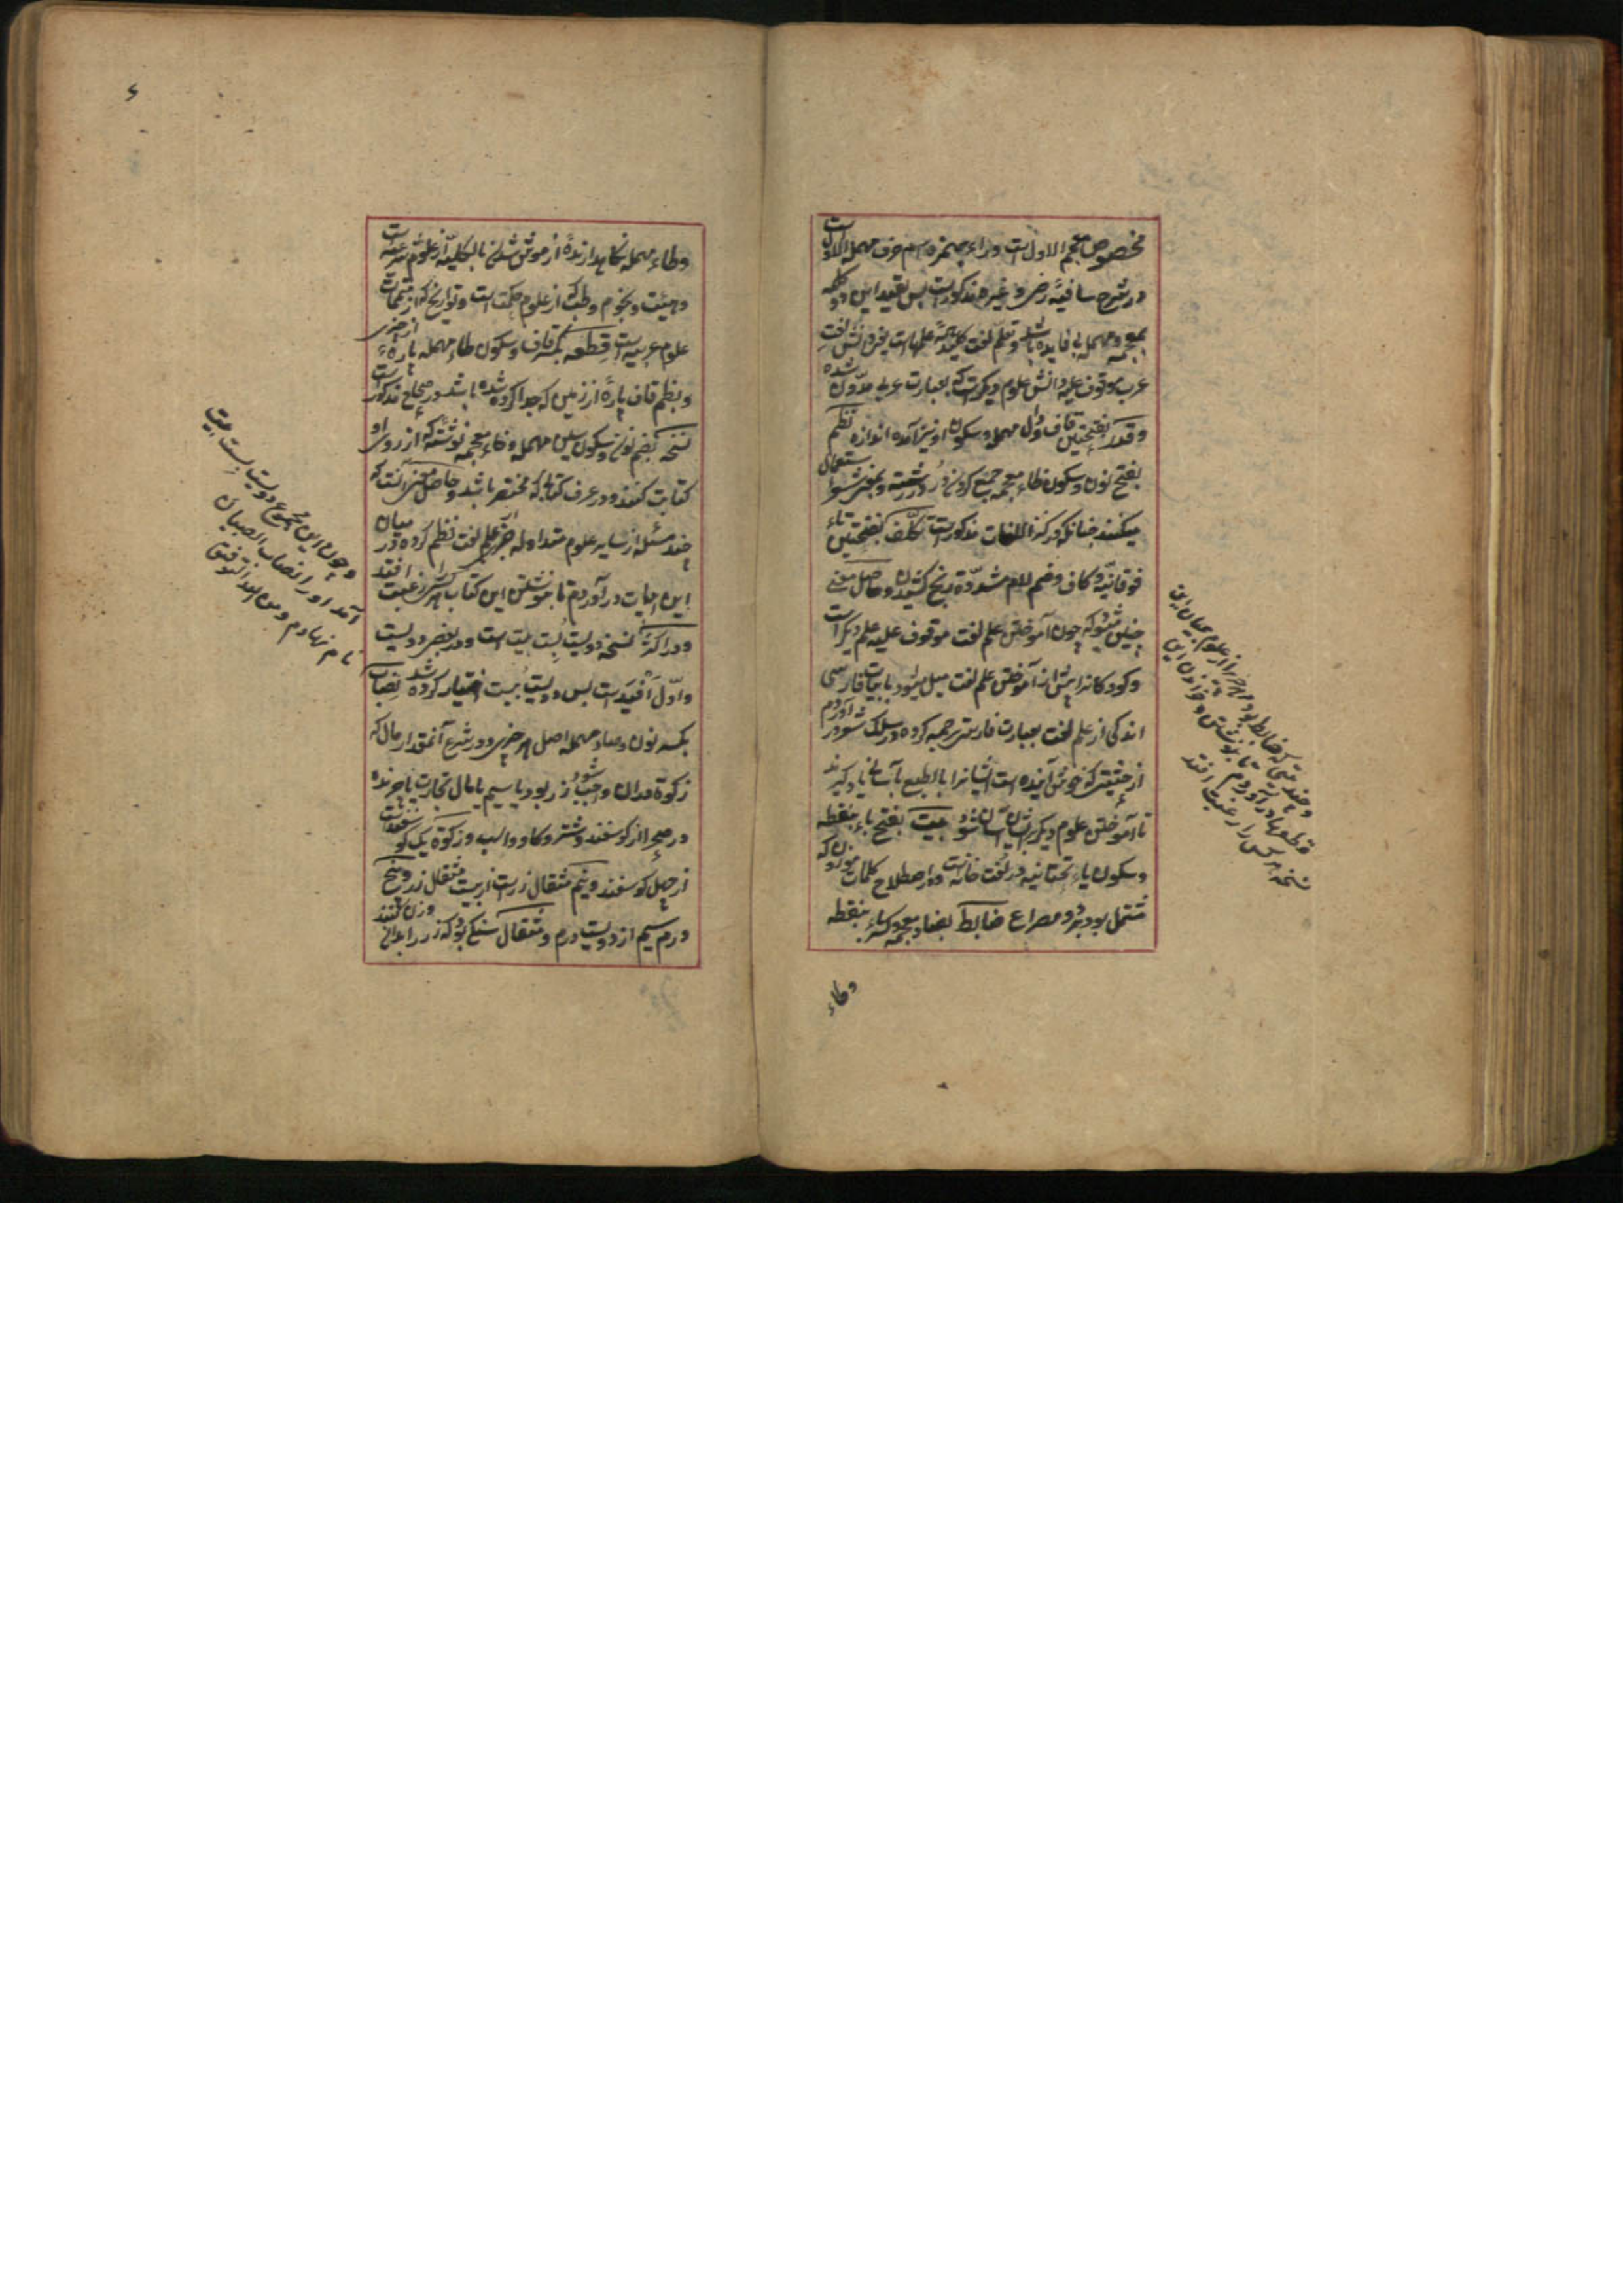 مخصوص معجم الاول است وراء بهمزه اسم حرف مهمل الاول است
در شرح شافیه رضی و غیره مذکور است پس تقیید این دو کلمه
بمعجمه و مهمله بی فایده باشد و تعلم لغت کلید همه علمهاست یعنی دانش لغت
عرب موقوف علیه دانش علوم دیگر است که بعبارت عربی مدون شده
و قدر بفتحتین قاف و دال مهمله و سکون او نیز آمده اندازه نظم
بفتح نون و سکون ظاء معجمه جمع کردن در در رشته و بمعنی شعر استعمال
میکنند چنانکه در کنز اللغات مذکور است تکلف بفتحتین تاء
فوقانیه و کاف و ضم لام مشدده رنج کشیدن و حاصل معنی
چنین میشود که چون آموختن علم لغت موقوف علیه علم دیگر است
و کودکانرا پیش از آموختن علم لغت میل میشود بابیات فارسی
اندکی از علم لغت بعبارت فارسی ترجمه کرده در سلک شعر در آوردم
از حیثیتی که خوش آینده است ایشانرا بالطبع بآسانی یاد گیرند
تا آموختن علوم دیگر بر ایشان آسان شود بیت بفتح باء بنقطه
و سکون یاء تحتانیه در لغت خانه است و در اصطلاح کلمات موزون که
مشتمل بود بر دو مصراع ضابط بضاد معجمه و کسر باء بنقطه
وطاء
و چند قطعه که ضابط بود مر از علوم میان این
قطعها در آوردم تا بنوشتن و خواندن این
نسخه هر کس را رغبت افتد
وطاء مهمله نگاهدارنده از فراموش شدن بالکلیه از علوم شرعیه است
و هیئت و نجوم و طب که از علوم حکمت است و تواریخ که از متممات
علوم عربیه است قطعه بکسر قاف و سکون طاء مهمله پارهٔ از چیزی
و بظم قاف پارهٔ از زمین که جدا کرده شده باشد در صحاح مذکور است
نسخه بضم نون و سکون سین مهمله و خاء معجمه نوشته که از روی او
کتابت کنند و در عرف کتابی که مختصر باشد و حاصل معنی آنست که
چند مسئله از سایر علوم متداوله جز علم لغت نظم کرده در میان
این ابیات در آوردم تا بنوشتن این کتاب هر کس را رغبت افتد
و در اکثر نسخه دویست بیست بیت است و در بعضی دویست
و اول افید است پس دویست بیست اختیار کرده شد نصاب
بکسر نون و صاد مهمله اصل هر چیزی و در شرع آنمقدار مال که
زکوة در آن واجب شود زر بود یا سیم یا مال تجارت یا چرنده
در صحرا از گوسفند و شتر و گاو و اسب و زکوة یک گوسفند است
از چهل گوسفند و نیم مثقال زر است از بیست مثقال زر و پنج
درم سیم از دویست درم و مثقال سنگی بود که زر را بدان وزن کنند
و چون این مجموع دویست بیست بیت
آمد او را نصاب الصبیان
نام نهادم و من الله التوفیق